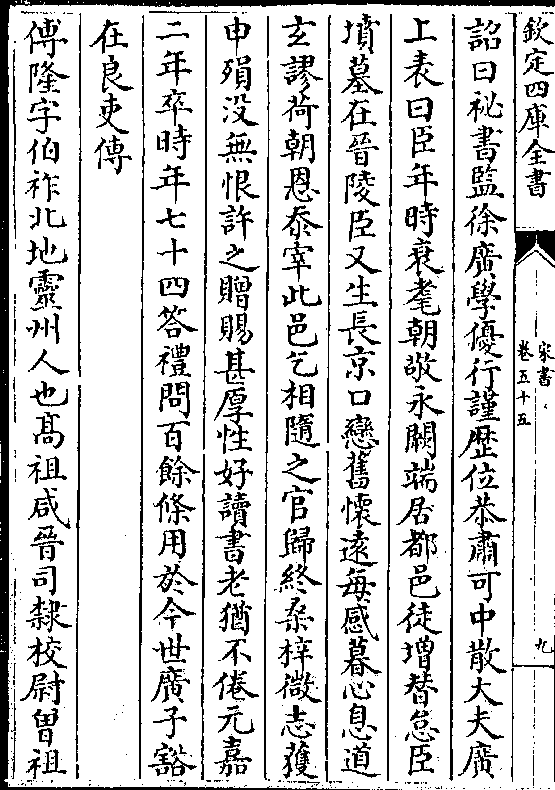 欽定四庫全書
宋書
卷五十五
九
詔曰祕書監徐廣學優行謹歴位恭肅可中散大夫廣
上表曰臣年時衰耄朝敬永闕端居都邑徒増替怠臣
墳墓在晉陵臣又生長京口戀舊懷逺每感暮心息道
玄謬荷朝恩忝宰此邑乞相隨之官歸終桑梓微志獲
申殞没無恨許之贈賜甚厚性好讀書老猶不倦元嘉
二年卒時年七十四答禮問百餘條用於今世廣子豁
在良吏傳
傅隆字伯祚北地靈州人也髙祖咸晉司隸校尉曽祖